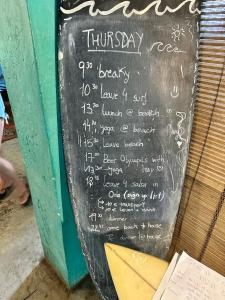 THURSDAY
9 30 breaky
10 30 Leave 4 surf
13 30 Lunch @
14 yoga @ beach
15 30 Leave beach
17 00 Beer Olympics with
17 30 yoga
18 leave 4 salsa in
(sign up list)
19 30 dinner
come back to house
@ house